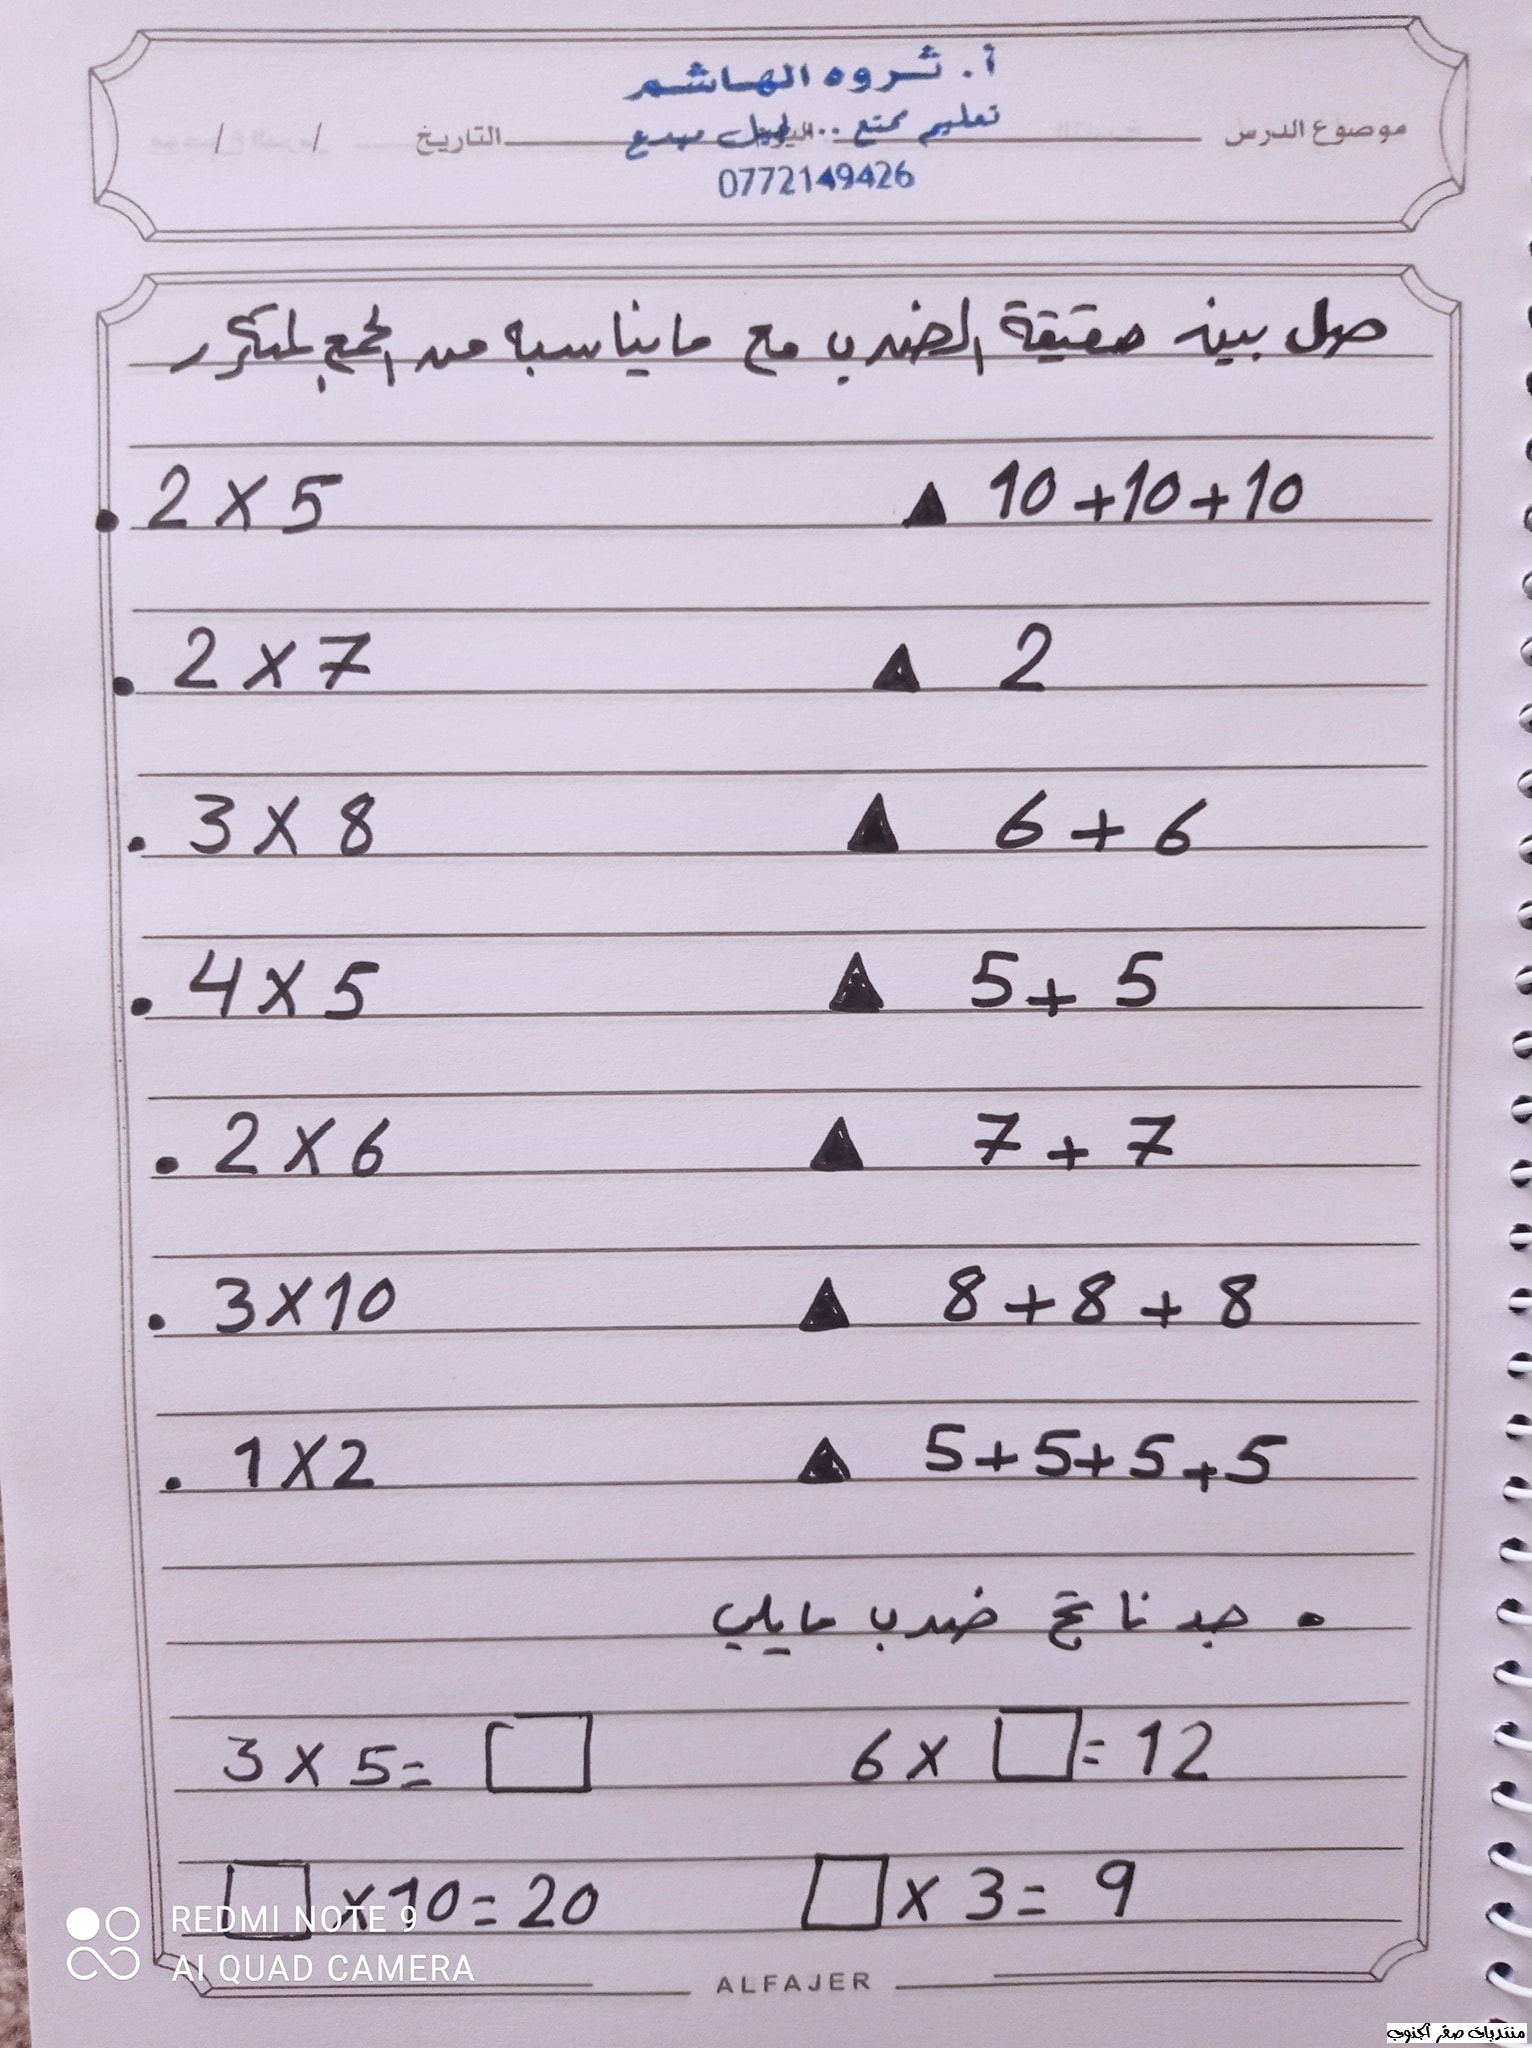 أ. ثروه الهاشم
تعليم ممتع .. جيل مبدع
موضوع الدرس اليوم التاريخ / /
0772149426
صل بين حقيقة الضرب مع ما يناسبه من الجمع المتكرر
2 × 5 ▲ 10 + 10 + 10
2 × 7 ▲ 2
3 × 8 ▲ 6 + 6
4 × 5 ▲ 5 + 5
2 × 6 ▲ 7 + 7
3 × 10 ▲ 8 + 8 + 8
1 × 2 ▲ 5 + 5 + 5 + 5
• جد ناتج ضرب ما يلي
3 × 5 = □ 6 × □ = 12
□ × 10 = 20 □ × 3 = 9
REDMI NOTE 9
AI QUAD CAMERA
ALFAJER
منتديات صقر الجنوب